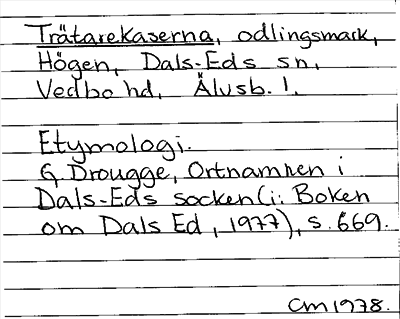 Trätarekaserna, odlingsmark,
Högen, Dals-Eds sn,
Vedbo hd, Älvsb. l.
Etymologi.
G Drougge, Ortnamnen i
Dals-Eds socken (i: Boken
om Dals Ed, 1977), s. 669.
CM 1978.